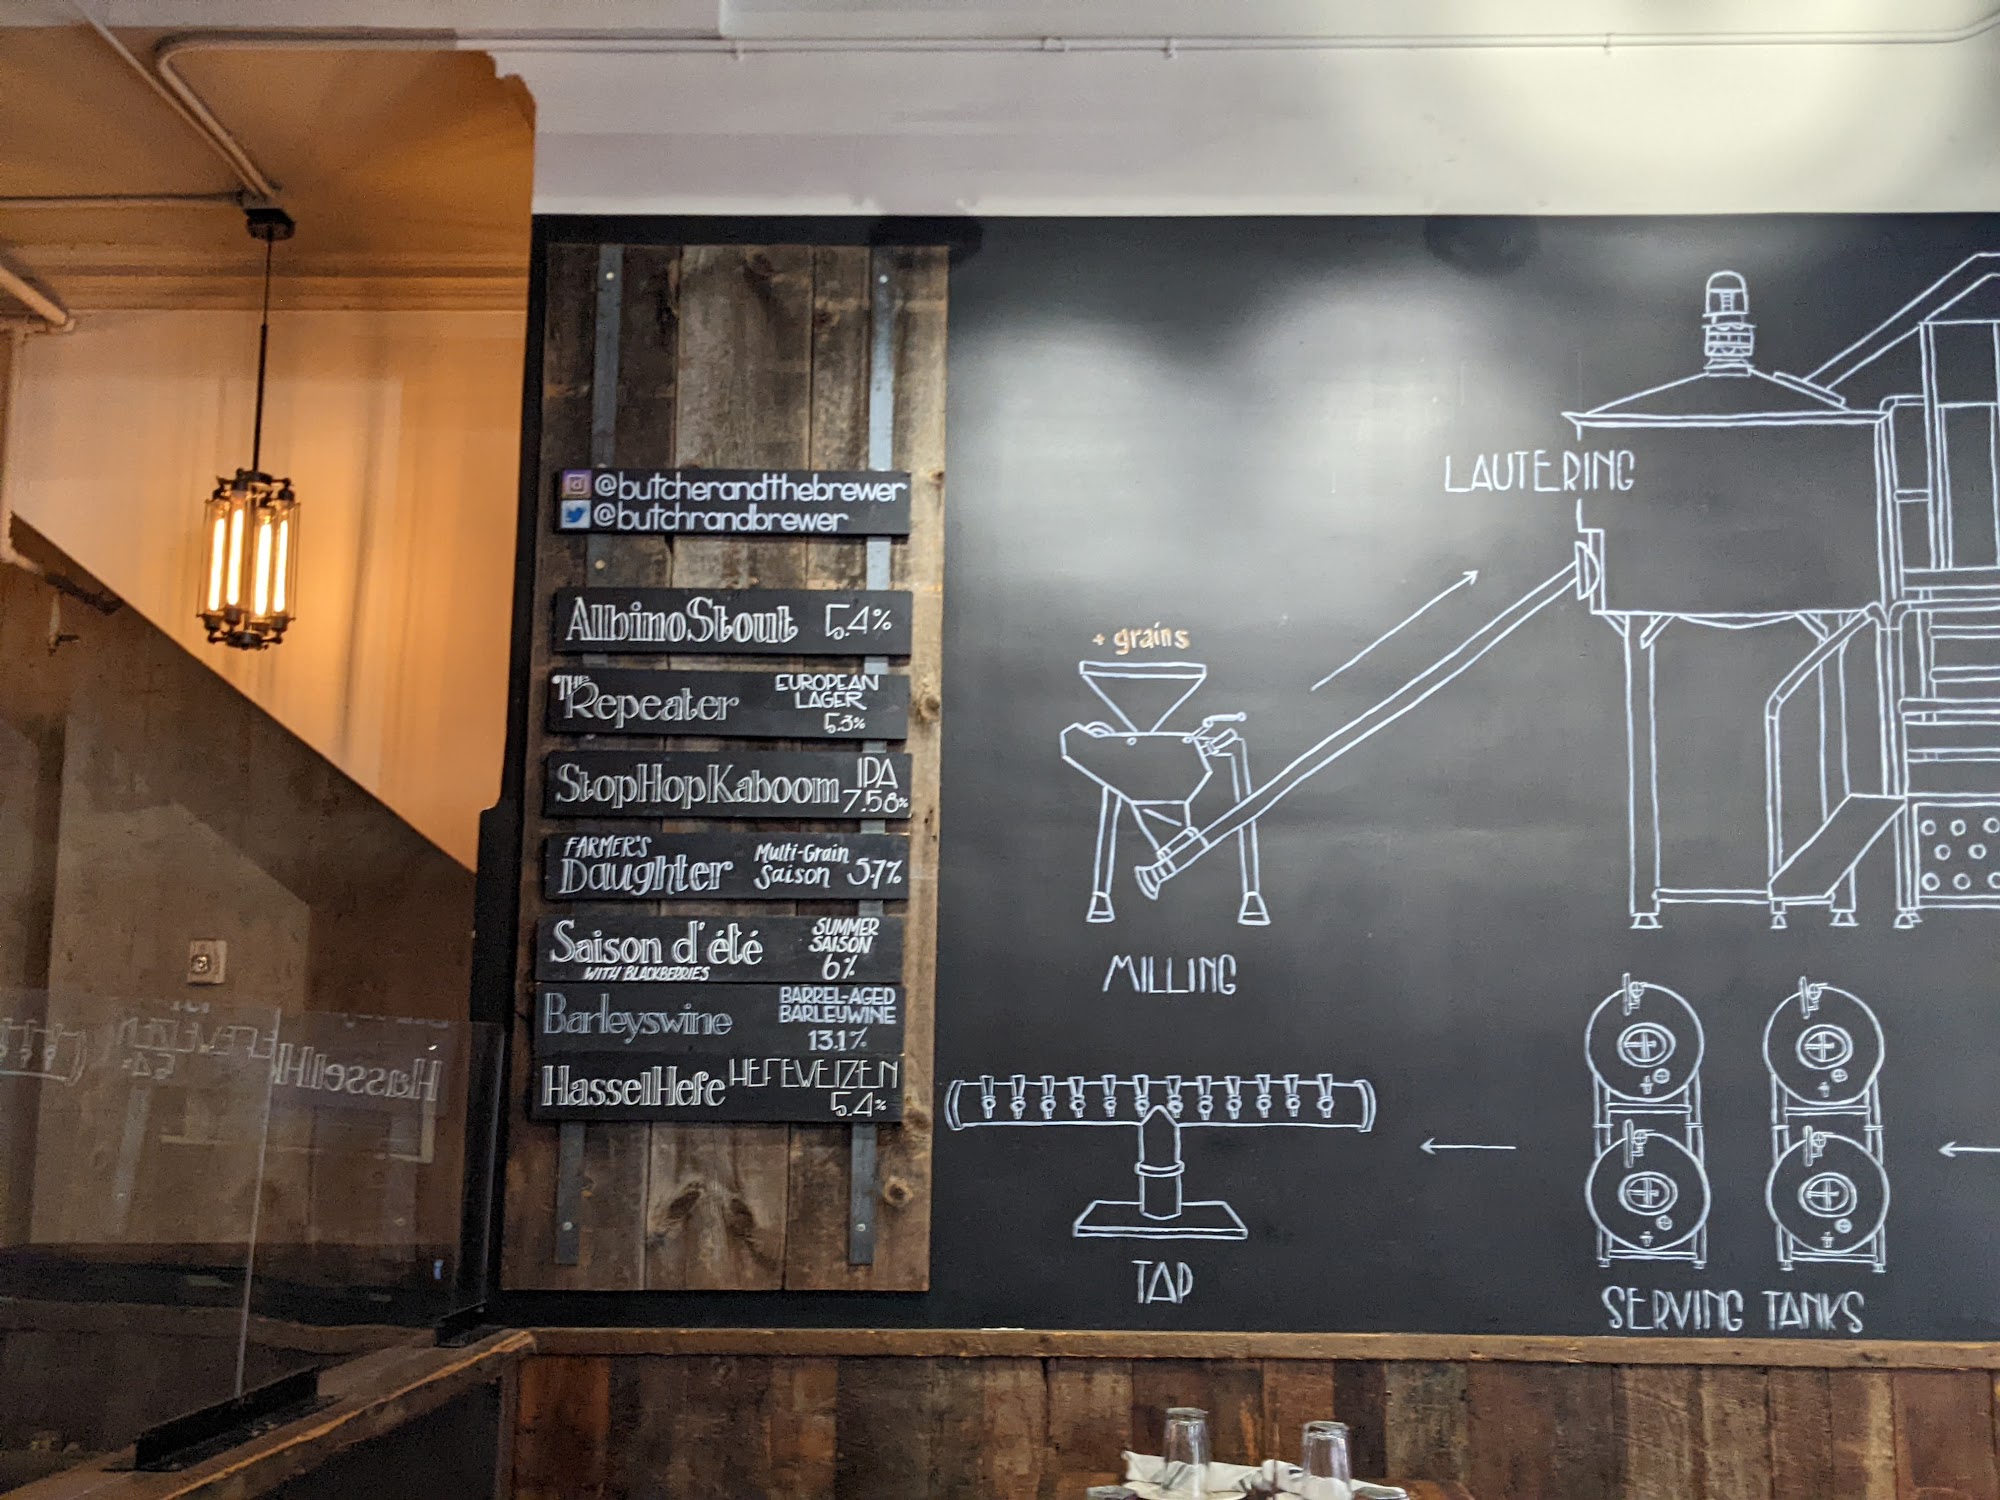 @butcherandthebrewer
@butchrandbrewer
AlbinoStout 5.4%
THE Repeater EUROPEAN LAGER 5.3%
StopHopKaboom IPA 7.58%
FARMER'S Daughter Multi-Grain Saison 5.7%
Saison d'été SUMMER SAISON
WITH BLACKBERRIES 6%
Barleyswine BARREL-AGED BARLEYWINE 13.1%
HasselHefe HEFEWEIZEN 5.4%
LAUTERING
+ grains
MILLING
TAP
SERVING TANKS